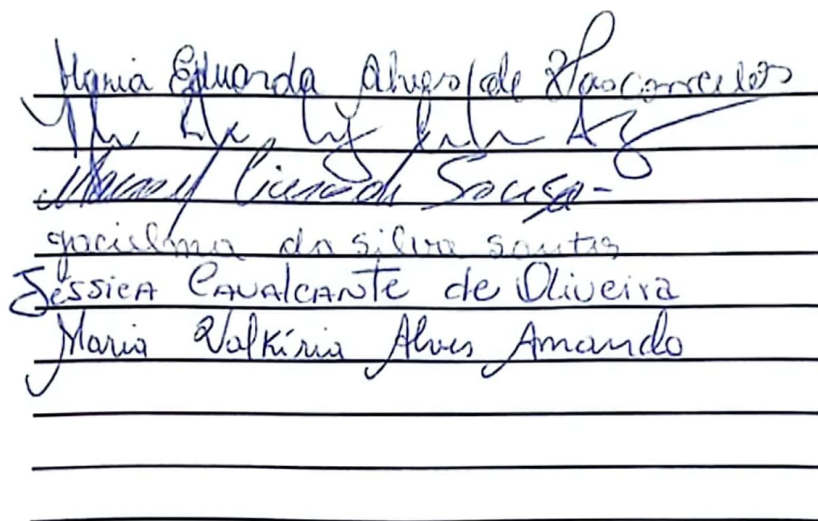 Maria Eduarda Alves de Vasconcelos
Manoel Cicero de Sousa
gocielma da silva santos
Jéssica Cavalcante de Oliveira
Maria Valkíria Alves Amando